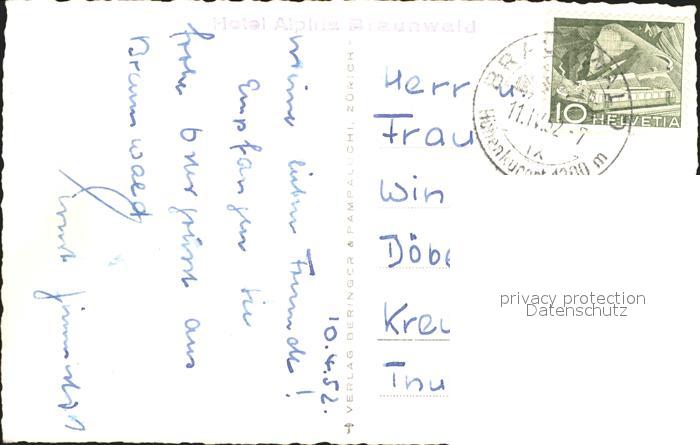 Hotel Alpina Braunwald
10.4.52.
meine lieben Freunde!
Empfangen Sie
frohe Ostergrüsse aus
Braunwald
VERLAG BERINGER & PAMPALUCHI, ZÜRICH
Herr u
Frau
Win
Döbe
Kreu
Thu
BRAUNWALD
11.IV.52-7
Höhenkurort 1300 m
10 HELVETIA
privacy protection
Datenschutz